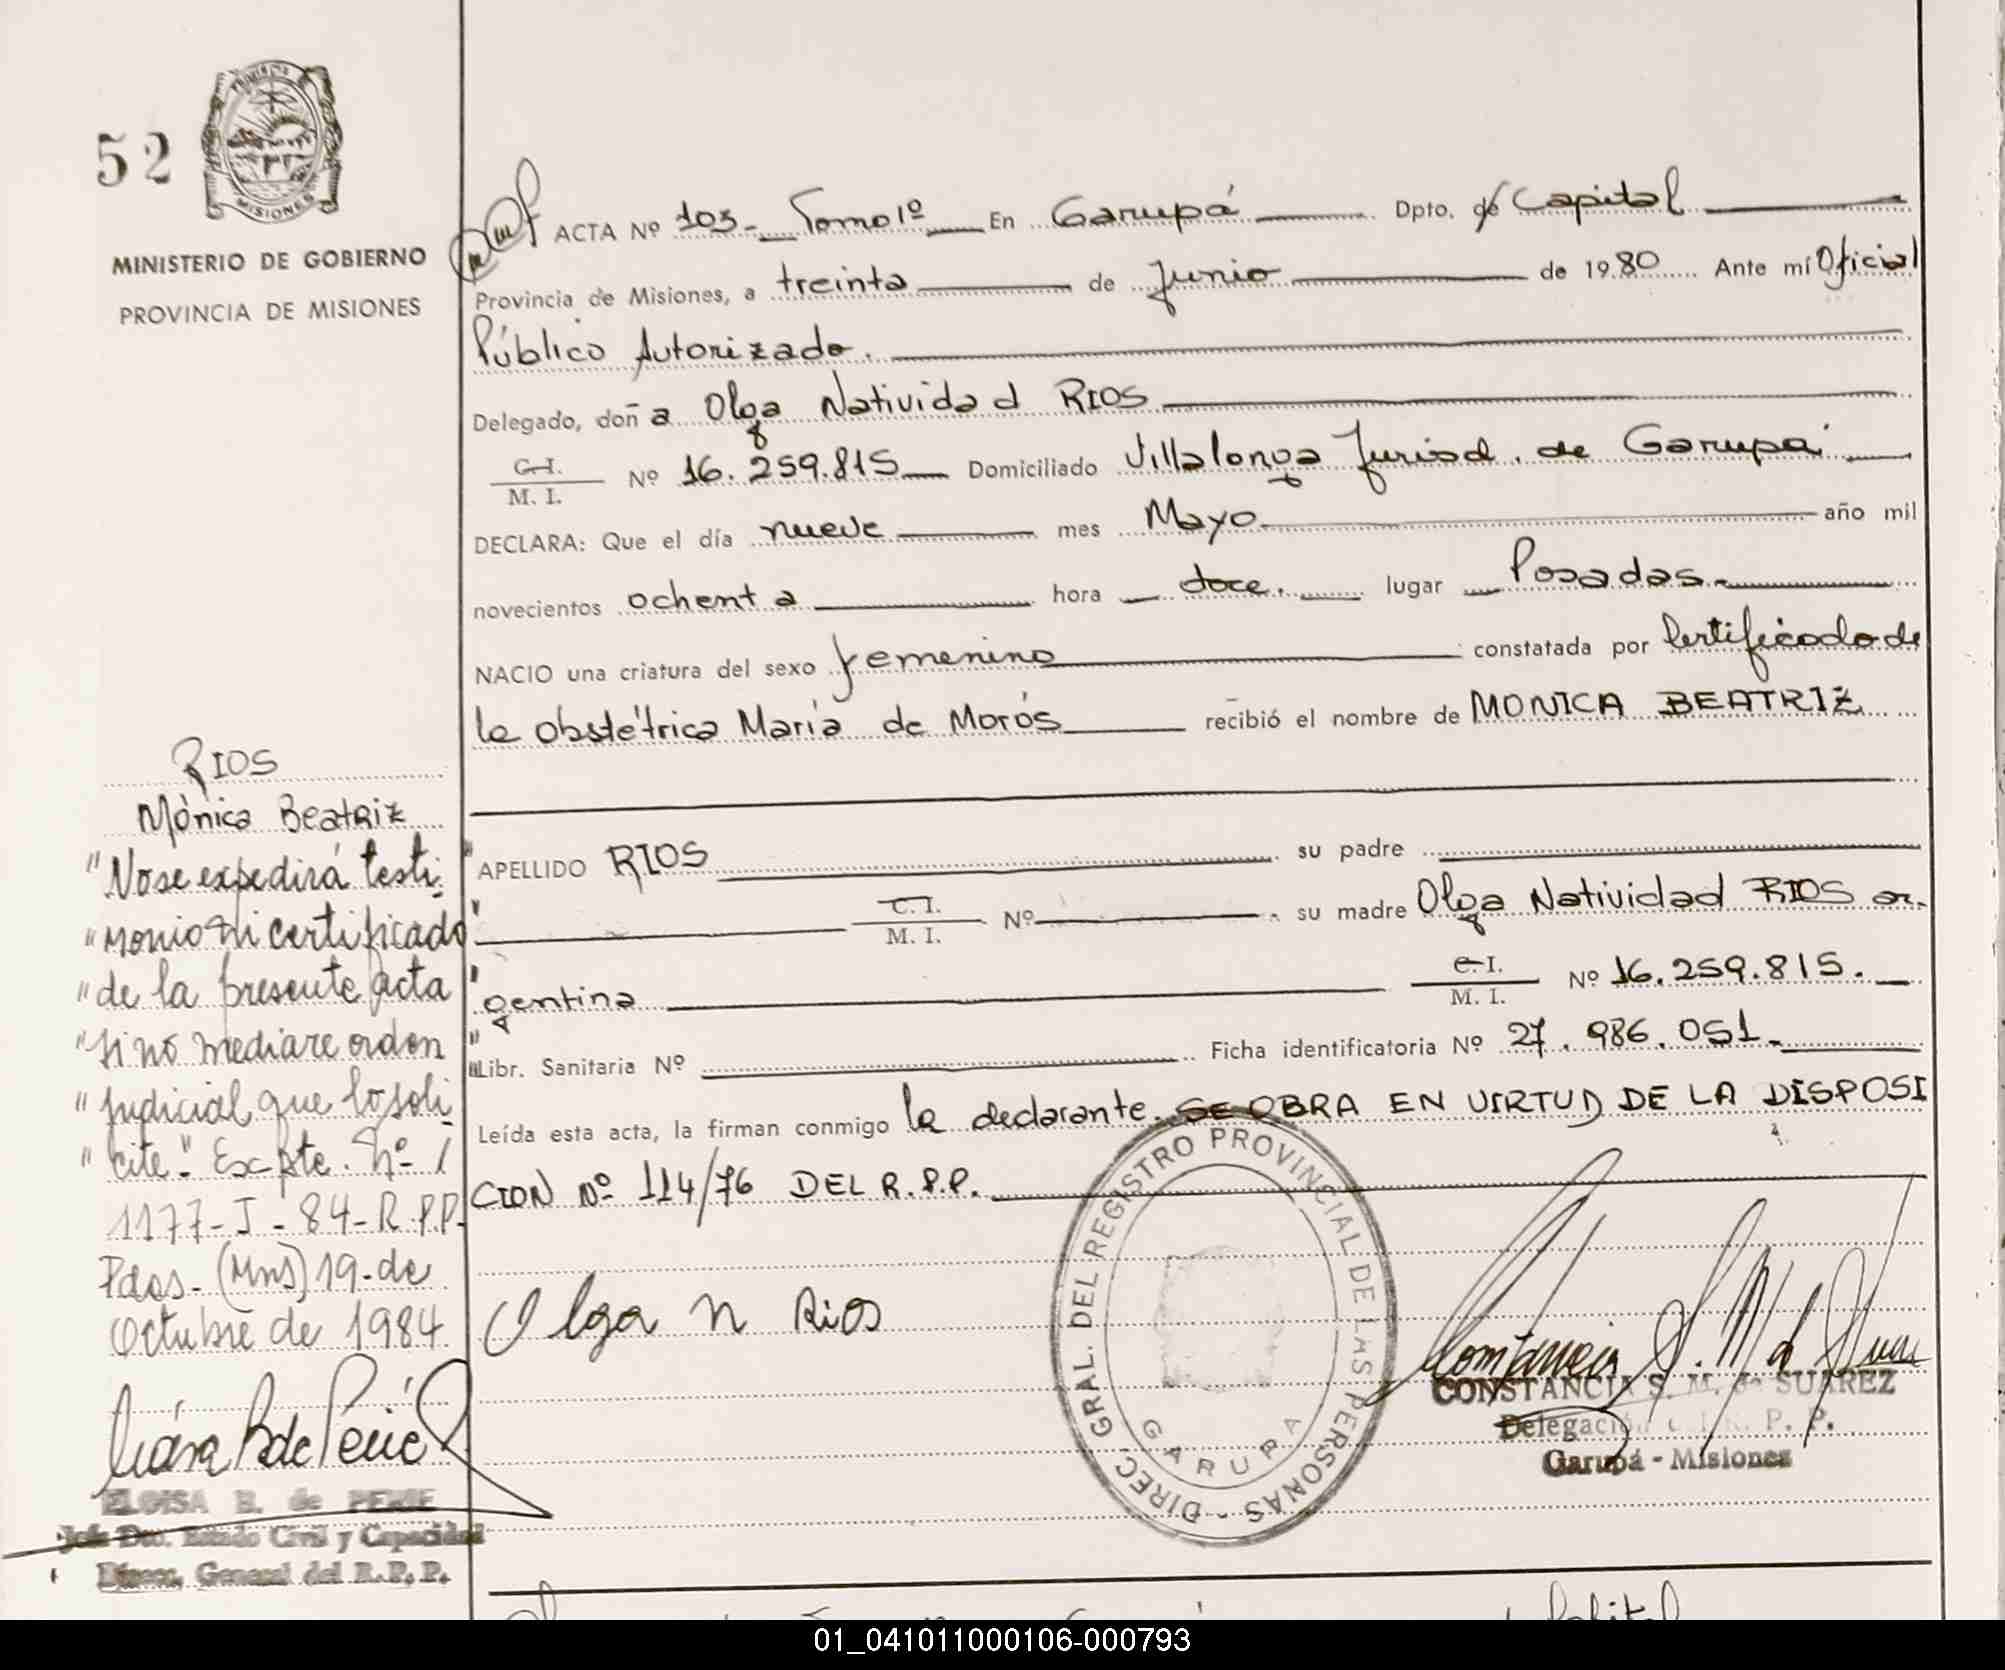 52
PROVINCIA
MISIONES
MINISTERIO DE GOBIERNO
PROVINCIA DE MISIONES
ACTA Nº 103- Tomo 1º En Garupá Dpto. de Capital
Provincia de Misiones, a treinta de Junio de 1980 Ante mí Oficial
Público Autorizado.
Delegado, doña Olga Natividad RIOS
C.I.
M. I. Nº 16.259.815 Domiciliado Villalonga Jurisd. de Garupá
DECLARA: Que el día nueve mes Mayo año mil
novecientos ochenta hora doce. lugar Posadas.
NACIO una criatura del sexo femenino constatada por Certificado de
la obstétrica María de Morós recibió el nombre de MONICA BEATRIZ
APELLIDO RIOS su padre
C.I.
M. I. Nº su madre Olga Natividad RIOS ar-
gentina C.I.
M. I. Nº 16.259.815.
Libr. Sanitaria Nº Ficha identificatoria Nº 27.986.051.
Leída esta acta, la firman conmigo la declarante. SE OBRA EN VIRTUD DE LA DISPOSI
CION Nº 114/76 DEL R.P.P.
Olga N Rios
DIREC. GRAL. DEL REGISTRO PROVINCIAL DE LAS PERSONAS -
GARUPA
CONSTANCIA S. M. de SUAREZ
Delegación R. P. P.
Garupá - Misiones
RIOS
Mónica Beatriz
"No se expedirá testi
"monio ni certificado
"de la presente acta
"si no mediare orden
"judicial que lo soli
"cite". Expte. Nº 1
1177-J-84-R.P.P.
Pdas- (Mns) 19-de
Octubre de 1984.
ELOISA B. de PERIE
Jefe Dto. Estado Civil y Capacidad
Direcc. General del R.P.P.
01_041011000106-000793